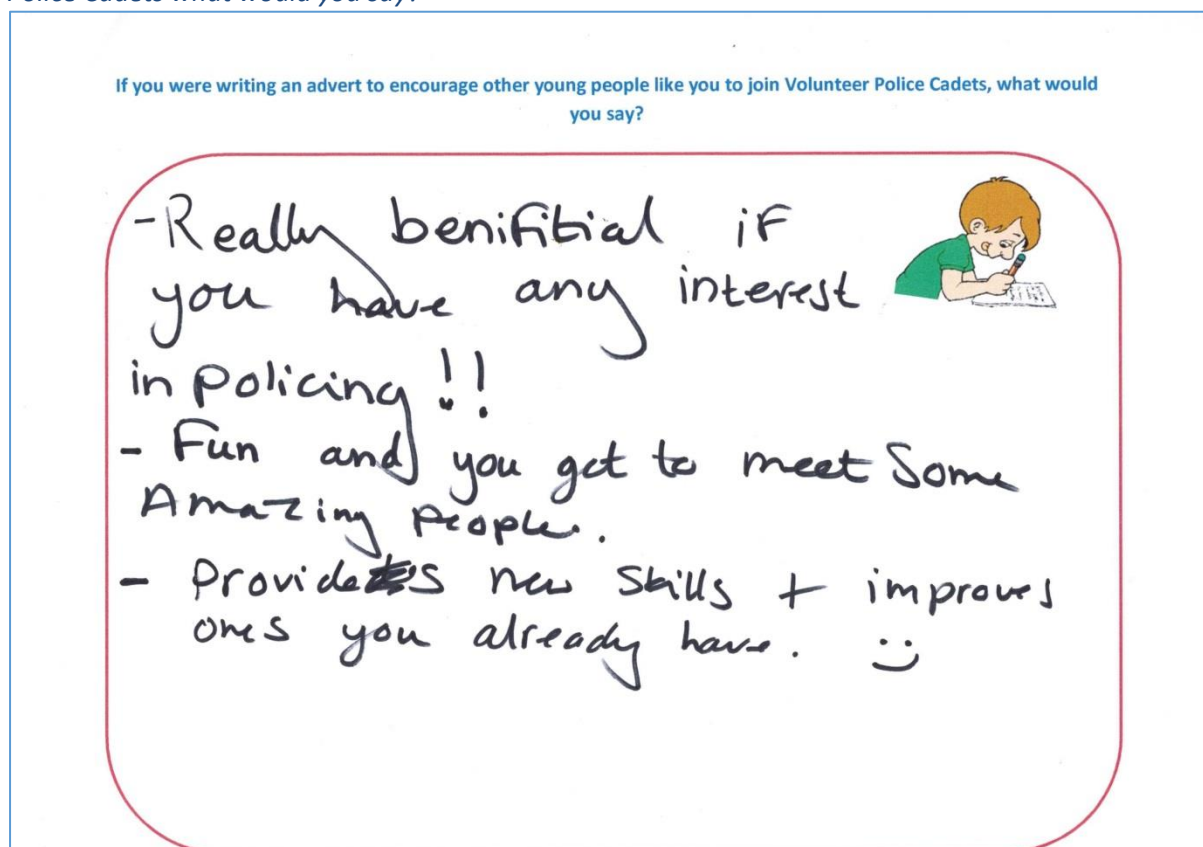 Police Cadets what would you say?
If you were writing an advert to encourage other young people like you to join Volunteer Police Cadets, what would
you say?
-Really benifitial if
you have any interest
in policing!!
- Fun and you get to meet Some
Amazing People.
- Provides new Skills + improves
ones you already have. :)